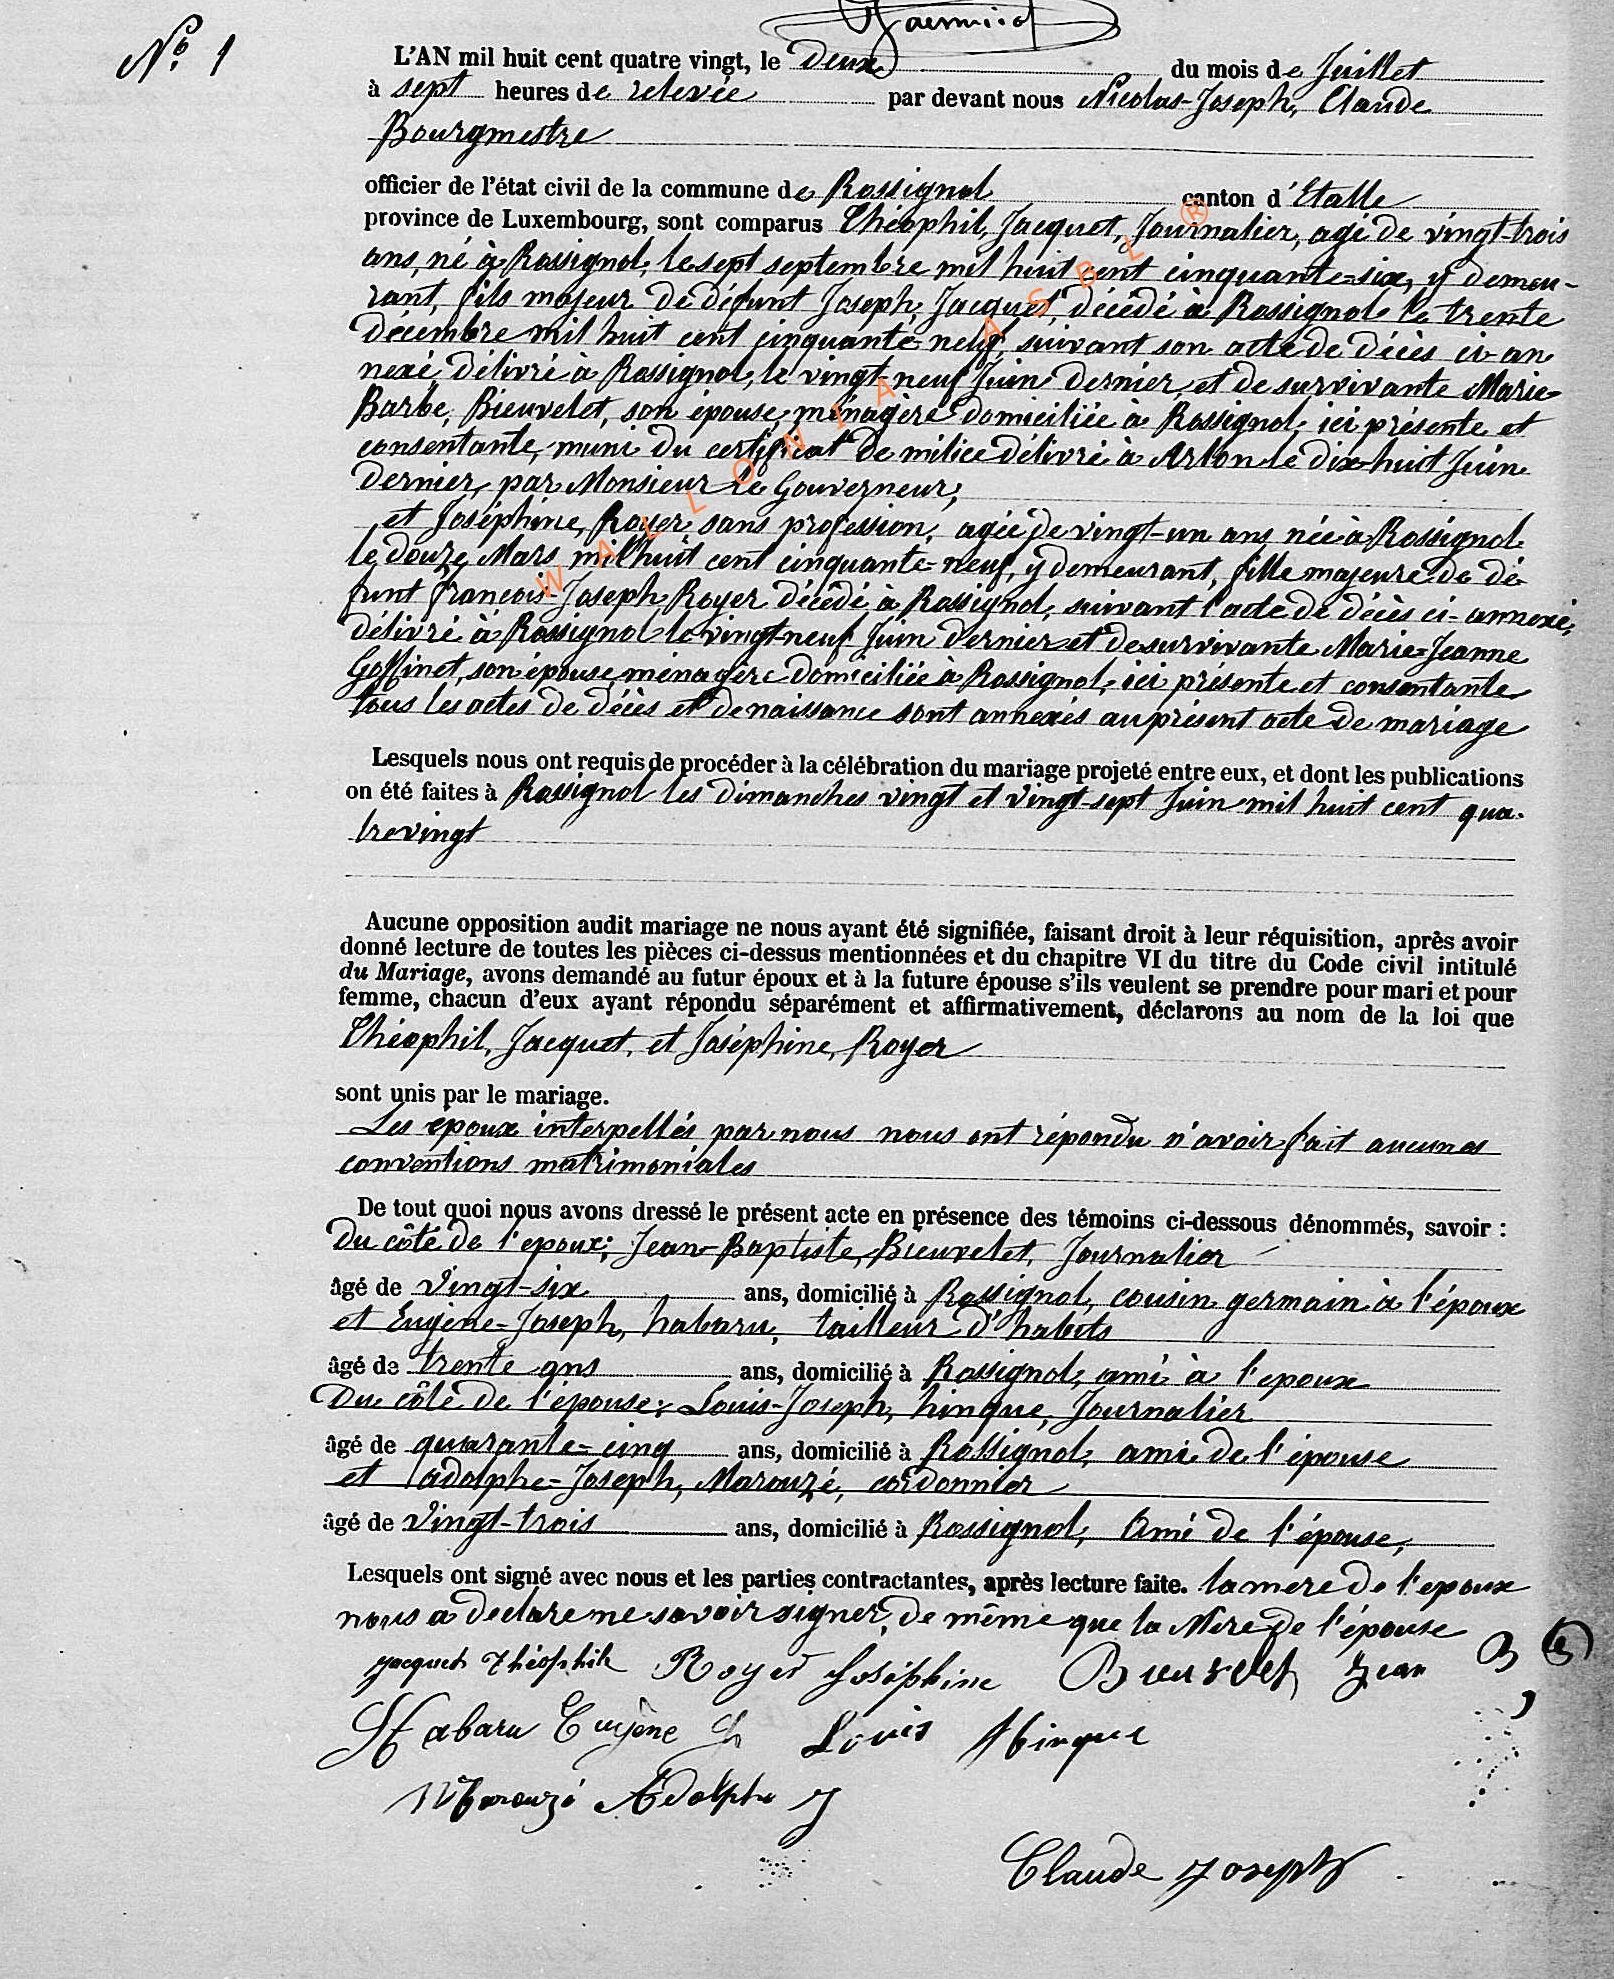 N° 1
L'AN mil huit cent quatre vingt, le deux du mois de Juillet
à sept heures de relevée par devant nous Nicolas-Joseph, Claude
Bourgmestre
officier de l'état civil de la commune de Rossignol canton d'Etalle
province de Luxembourg, sont comparus Théophil, Jacquet, Journalier, agé de vingt-trois
ans, né à Rossignol, le sept septembre mil huit cent cinquante-six, y demeu-
rant, fils majeur de défunt Joseph, Jacquet, décédé à Rossignol le trente
décembre mil huit cent cinquante-neuf, suivant son acte de décès ci-an
nexé délivré à Rossignol, le vingt-neuf Juin dernier, et de survivante Marie-
Barbe, Bieuvelet, son épouse, ménagère domiciliée à Rossignol, ici présente et
consentante, muni du certificat de milice délivré à Arlon le dix-huit Juin
dernier, par Monsieur le Gouverneur;
et Joséphine, Royer, sans profession, agée de vingt-un ans née à Rossignol
le douze Mars mil huit cent cinquante-neuf, y demeurant, fille majeure de dé-
funt François-Joseph, Royer décédé à Rossignol, suivant l'acte de décès ci-annexé,
délivré à Rossignol le vingt-neuf Juin dernier et de survivante Marie-Jeanne
Goffinet, son épouse, ménagère domiciliée à Rossignol, ici présente et consentante
tous les actes de décès et de naissance sont annexés au présent acte de mariage
Lesquels nous ont requis de procéder à la célébration du mariage projeté entre eux, et dont les publications
on été faites à Rossignol les dimanches vingt et vingt-sept Juin mil huit cent qua-
trevingt
Aucune opposition audit mariage ne nous ayant été signifiée, faisant droit à leur réquisition, après avoir
donné lecture de toutes les pièces ci-dessus mentionnées et du chapitre VI du titre du Code civil intitulé
du Mariage, avons demandé au futur époux et à la future épouse s'ils veulent se prendre pour mari et pour
femme, chacun d'eux ayant répondu séparément et affirmativement, déclarons au nom de la loi que
Théophil, Jacquet, et Joséphine, Royer
sont unis par le mariage.
Les époux interpellés par nous nous ont répondu n'avoir fait aucunes
conventions matrimoniales
De tout quoi nous avons dressé le présent acte en présence des témoins ci-dessous dénommés, savoir :
Du côté de l'époux; Jean-Baptiste, Bieuvelet, Journalier
âgé de vingt-six ans, domicilié à Rossignol, cousin germain à l'époux
et Eugène-Joseph, habaru, tailleur d'habits
âgé de trente ans ans, domicilié à Rossignol, ami à l'époux
Du côté de l'épouse: Louis-Joseph, hinque, Journalier
âgé de quarante-cinq ans, domicilié à Rossignol, ami de l'épouse
et adolphe-Joseph, Marouzé, cordonnier
âgé de vingt-trois ans, domicilié à Rossignol, Ami de l'épouse,
Lesquels ont signé avec nous et les parties contractantes, après lecture faite. la mere de l'epoux
nous a declare ne savoir signer, de même que la Mère de l'épouse
Jacquet Théophile Royer Joséphine Bieuvelet Jean B
Habaru Eugène J Louis Hinque
Marouzé Adolphe J
Claude Joseph
WALLONIA ASBL ®